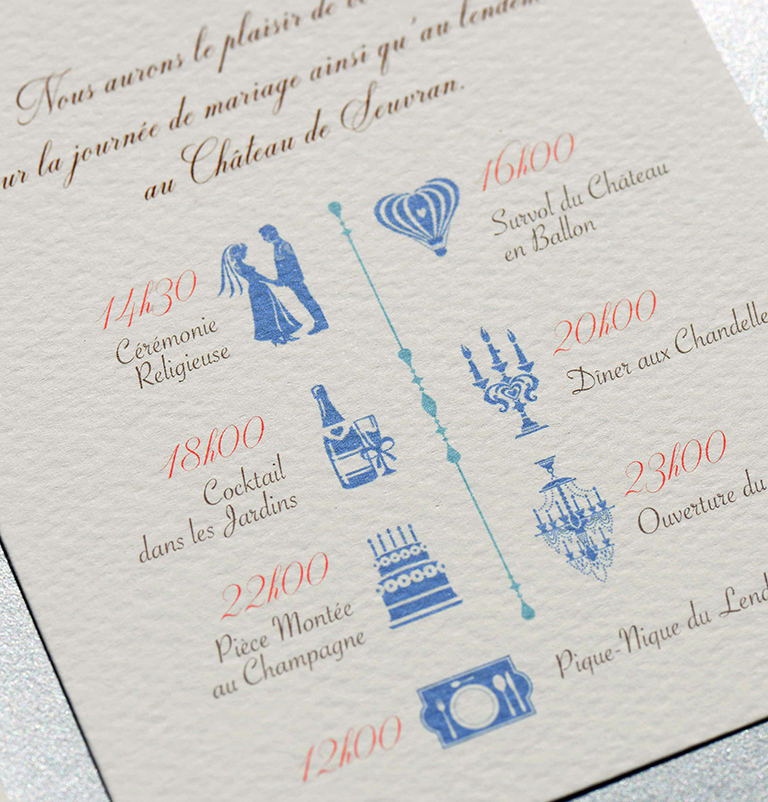 Nous aurons le plaisir de
la journée de mariage ainsi qu'au
au Château de Seuvran.
14h30
Cérémonie
Religieuse
16h00
Survol du Château
en Ballon
18h00
Cocktail
dans les Jardins
20h00
Dîner aux
22h00
Pièce Montée
au Champagne
23h00
Ouverture du
12h00
Pique-Nique du